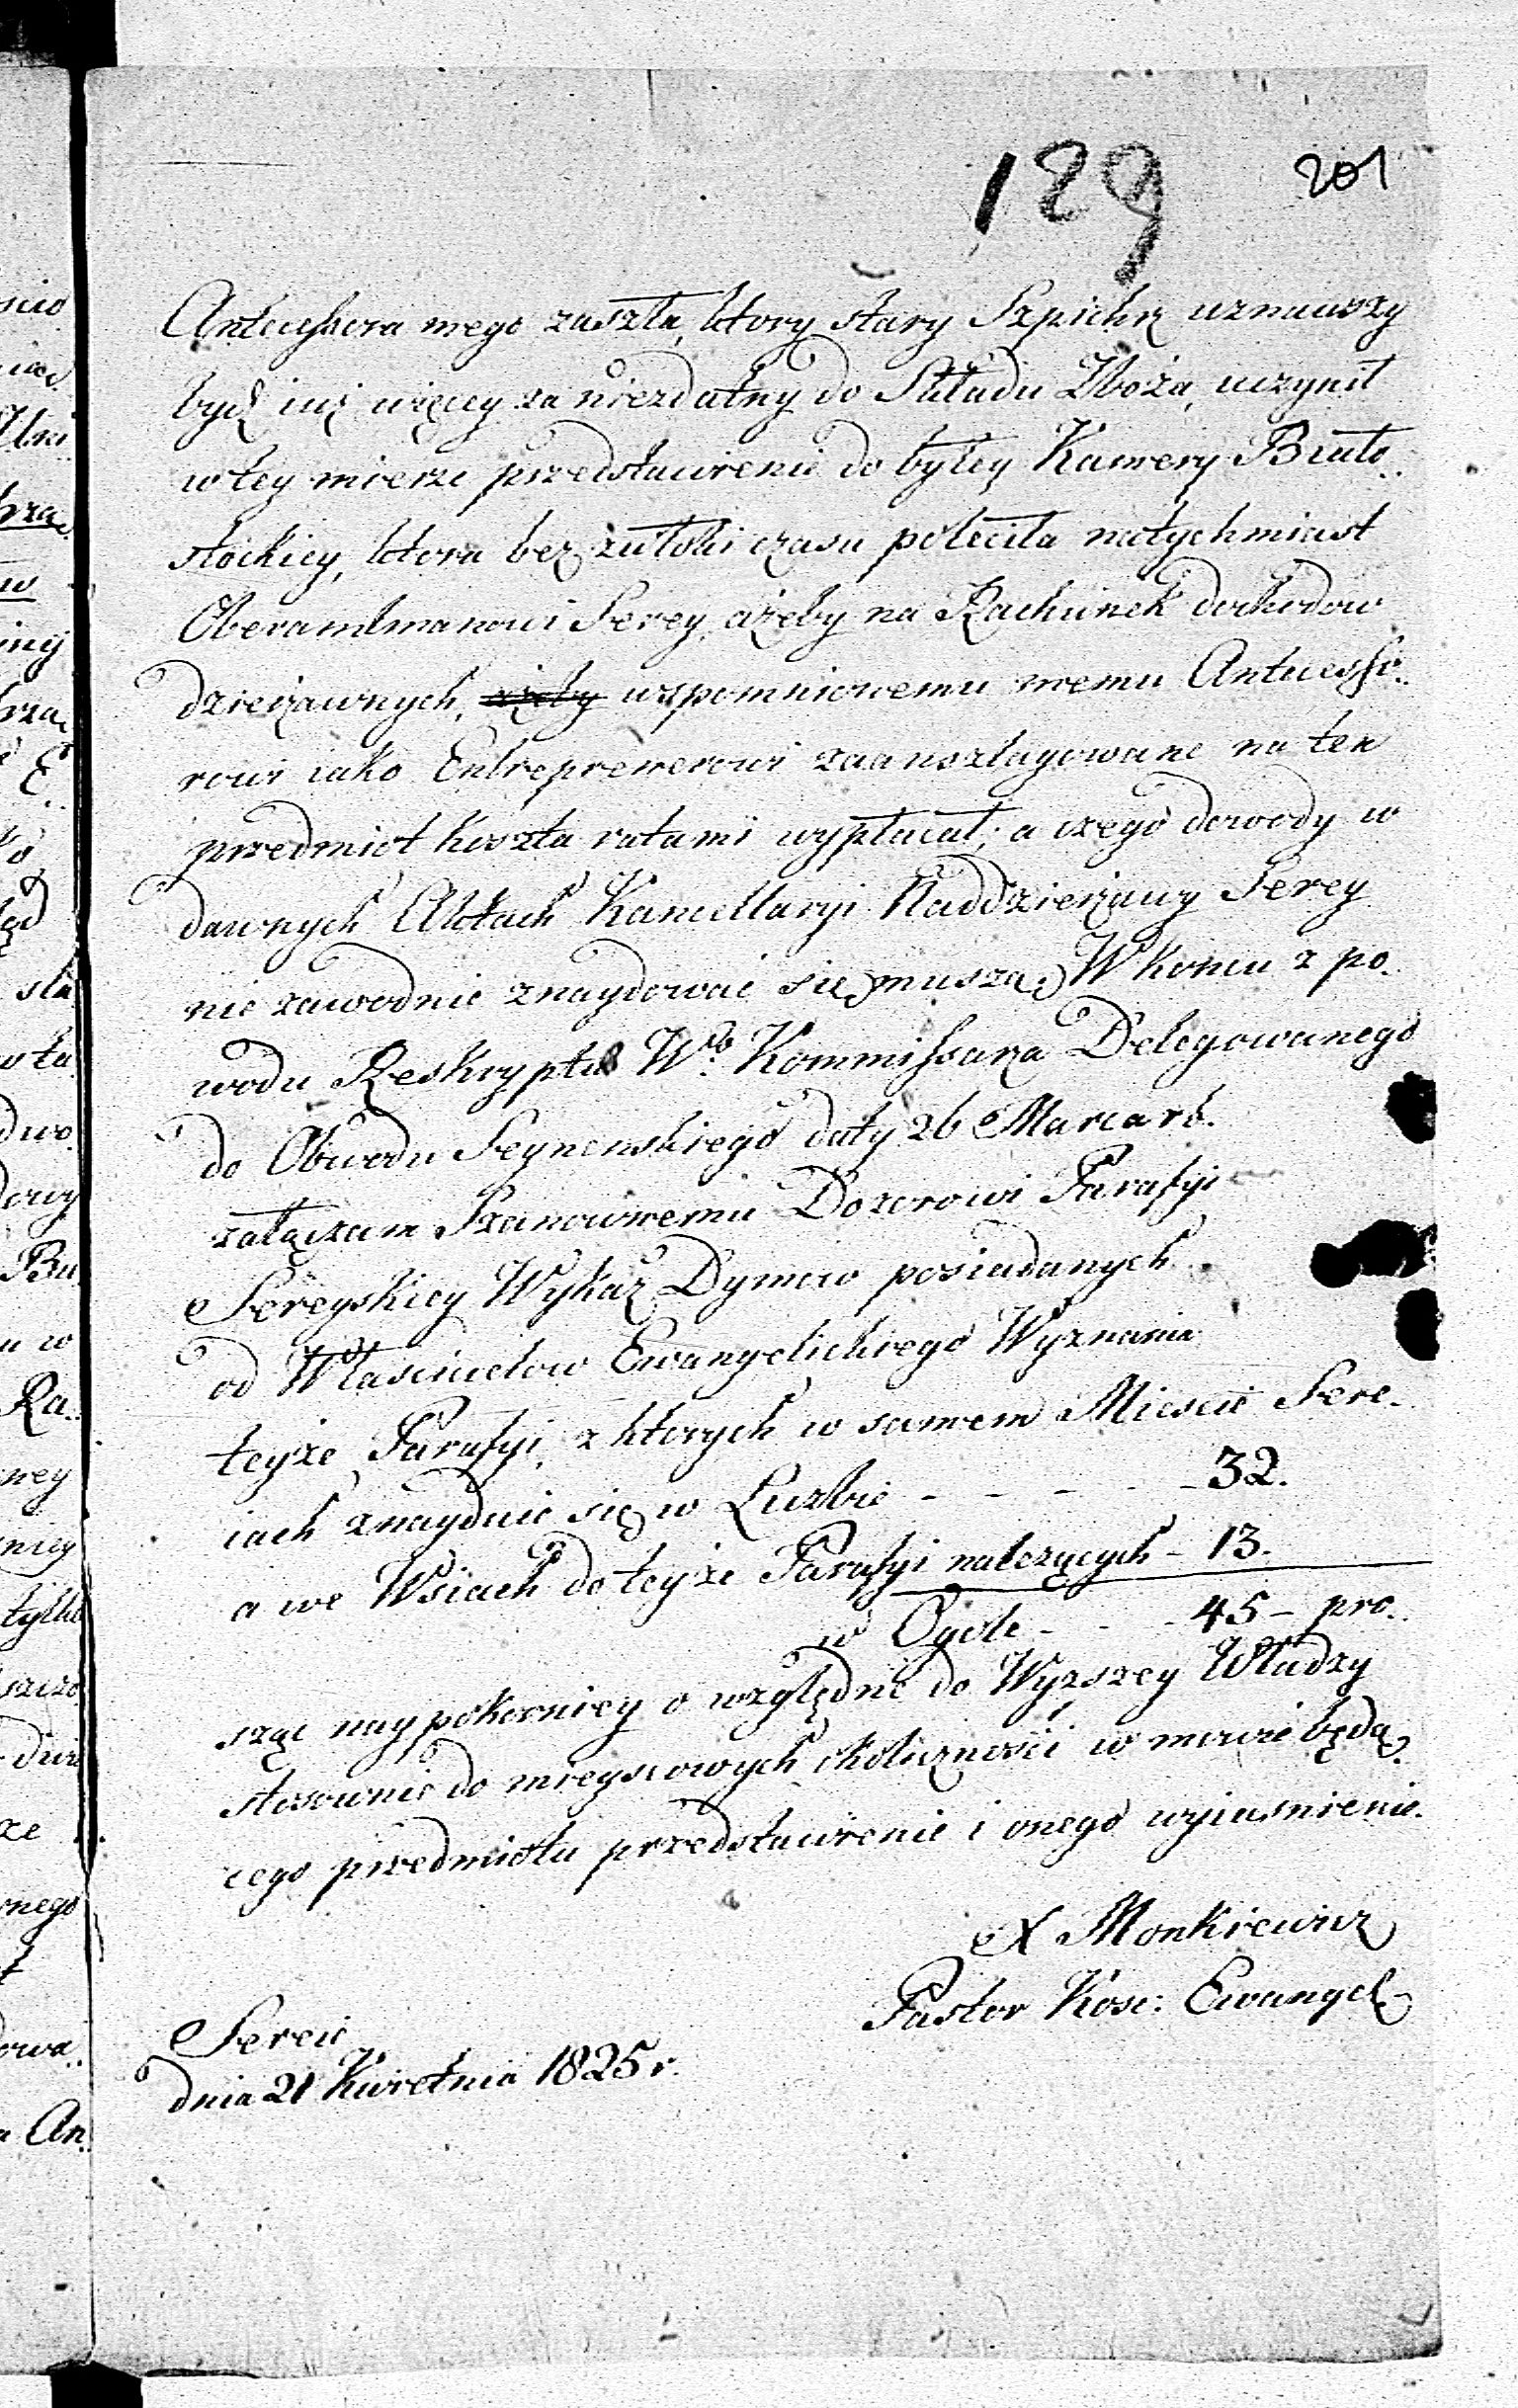 189 201
Antecessora mego zaszła, ktory stary Szpichrz uznawszy
bydź iuż więcey za niezdatny do Składu Zboża, uczynił
w tey mierze przedstawienie do byłey Kamery Biało..
stockiey, ktora bez zwłoki czasu poleciła natychmiast
Oberamtmanowi Serey, ażeby na Rachunek dochodow
dzierżawnych, ażeby wspomnionemu memu Antecesso..
rowi iako Entreprenerowi zaanszlagowane na ten
przedmiot koszta ratami wypłacał; a czego dowody w
dawnych Aktach Kancellaryi Naddzierżawy Serey
nie zawodnie znaydować się muszą. W koncu z po..
wodu Reskryptu W° Kommissarza Delegowanego
do Obwodu Seynenskiego daty 26 Marca r. b.
załączam Szanownemu Dozorowi Parafyi
Sereyskiey Wykaz Dymow posiadanych
od Włascicielow Ewangelickiego Wyznania
teyże Parafyi, z ktorych w samem Miescie Sere..
iach znayduie się w Liczbie - - - - - 32.
a we Wsiach do teyże Parafyi należących - 13.
w Ogole - - - 45 - pro..
sząc naypokorniey o względne do Wyższey Władzy
stosownie do mieyscowych okoliczności w mowie będą..
cego przedmiotu przedstawienie i onego wyiasnienie.
X Monkiewicz
Pastor Kosc: Ewangel
Sereie
dnia 21 Kwietnia 1825 r.